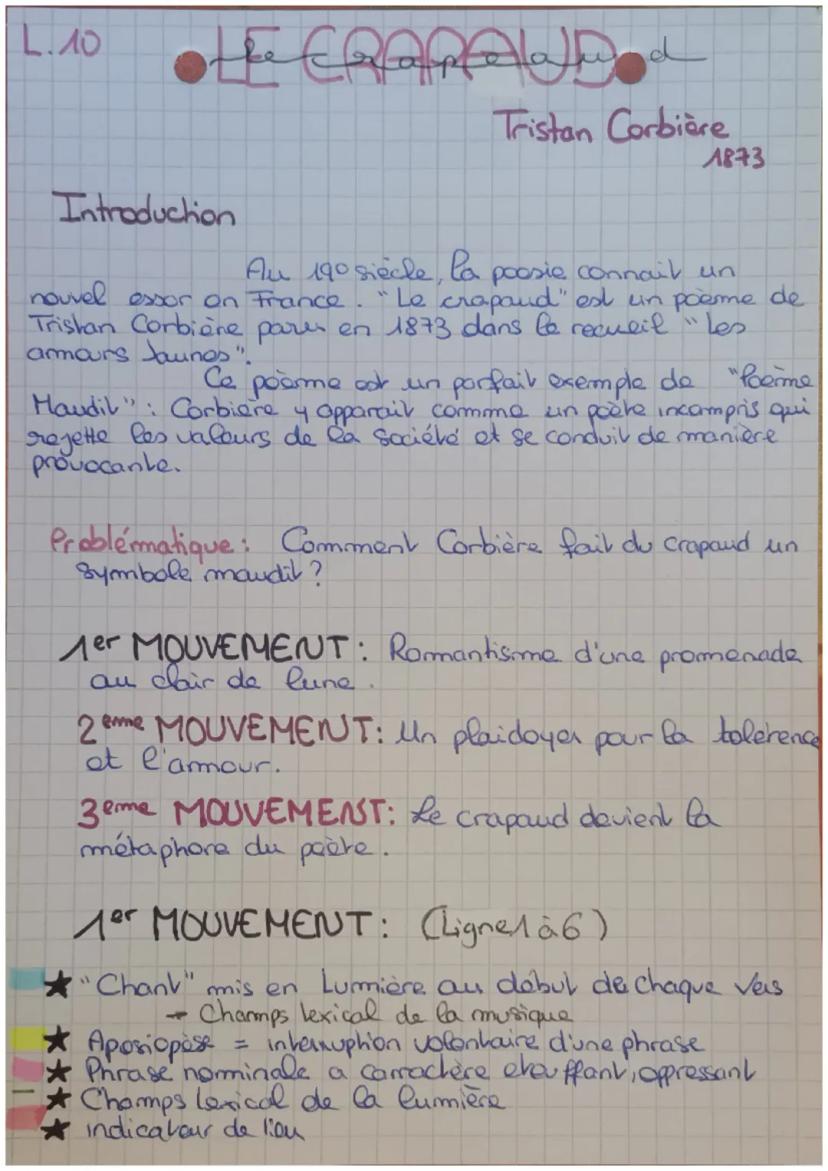 L.10
LE CRAPAUD
Le crapaud
Tristan Corbière
1873
Introduction
Au 19e siècle, la poésie connait un
nouvel essor en France. "Le crapaud" est un poème de
Tristan Corbière paru en 1873 dans le recueil "Les
amours Jaunes".
Ce poème est un parfait exemple de "Poème
Maudit" : Corbière y apparait comme un poète incompris qui
rejette les valeurs de la société et se conduit de manière
provocante.
Problématique : Comment Corbière fait du crapaud un
symbole maudit ?
1er MOUVEMENT : Romantisme d'une promenade
au clair de lune.
2eme MOUVEMENT : Un plaidoyer pour la tolérence
et l'amour.
3eme MOUVEMENT : Le crapaud devient la
métaphore du poète.
1er MOUVEMENT : (Ligne 1 à 6)
★ "Chant" mis en Lumière au début de chaque vers
→ Champs lexical de la musique
★ Aposiopèse = interruption volontaire d'une phrase
★ Phrase nominale a carractère etouffant, oppressant
★ Champs lexical de la lumière
★ indicateur de lieu